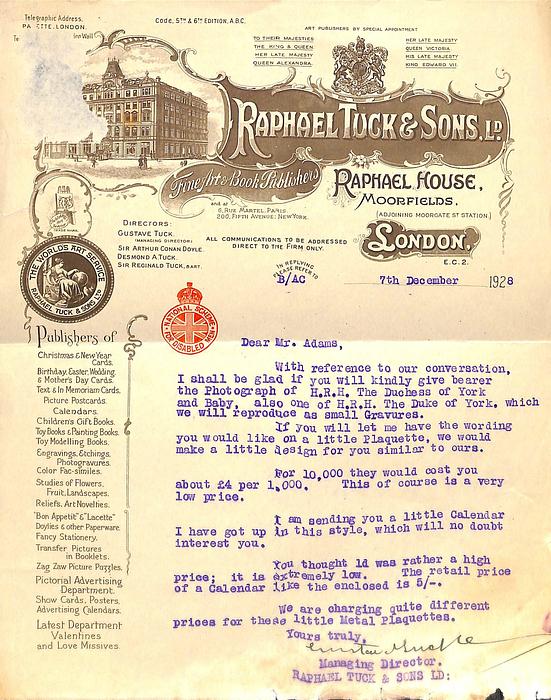 Telegraphic Address,
LONDON.
Code, 5TH & 6TH EDITION, A.B.C.
ART PUBLISHERS BY SPECIAL APPOINTMENT
TO THEIR MAJESTIES
THE KING & QUEEN
HER LATE MAJESTY
QUEEN ALEXANDRA.
HER LATE MAJESTY
QUEEN VICTORIA.
HIS LATE MAJESTY
KING EDWARD VII.
RAPHAEL TUCK & SONS, LD.
Fine Art & Book Publishers
RAPHAEL HOUSE,
MOORFIELDS,
(ADJOINING MOORGATE ST STATION.)
LONDON,
E.C. 2.
and at
6, RUE MARTEL, PARIS.
200, FIFTH AVENUE, NEW YORK.
DIRECTORS:
GUSTAVE TUCK
(MANAGING DIRECTOR)
SIR ARTHUR CONAN DOYLE.
DESMOND A. TUCK.
SIR REGINALD TUCK, BART.
ALL COMMUNICATIONS TO BE ADDRESSED
DIRECT TO THE FIRM ONLY.
IN REPLYING
PLEASE REFER TO
B/AC
7th December 1928
THE WORLD'S ART SERVICE
RAPHAEL TUCK & SONS LD
NATIONAL SCHEME
FOR DISABLED MEN
Publishers of
Christmas & New Year
Cards.
Birthday, Easter, Wedding,
& Mother's Day Cards.
Text & In Memoriam Cards.
Picture Postcards.
Calendars.
Children's Gift Books.
Toy Books & Painting Books.
Toy Modelling Books.
Engravings, Etchings,
Photogravures.
Color Fac-similes.
Studies of Flowers,
Fruit, Landscapes.
Reliefs, Art Novelties.
"Bon Appetit" & "Lacette"
Doylies & other Paperware.
Fancy Stationery.
Transfer Pictures
in Booklets.
Zag Zaw Picture Puzzles.
Pictorial Advertising
Department.
Show Cards, Posters,
Advertising Calendars.
Latest Department
Valentines
and Love Missives.
Dear Mr. Adams,
With reference to our conversation,
I shall be glad if you will kindly give bearer
the Photograph of H.R.H. The Duchess of York
and Baby, also one of H.R.H. The Duke of York, which
we will reproduce as small Gravures.
If you will let me have the wording
you would like on a little Plaquette, we would
make a little design for you similar to ours.
For 10,000 they would cost you
about £4 per 1,000. This of course is a very
low price.
I am sending you a little Calendar
I have got up in this style, which will no doubt
interest you.
You thought 1d was rather a high
price; it is extremely low. The retail price
of a Calendar like the enclosed is 5/-.
We are charging quite different
prices for these little Metal Plaquettes.
Yours truly,
Managing Director.
RAPHAEL TUCK & SONS LD: